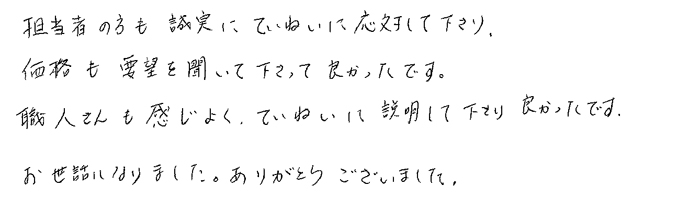 担当者の方も誠実にていねいに応対して下さり、
価格も要望を聞いて下さって良かったです。
職人さんも感じよく、ていねいに説明して下さり良かったです。
お世話になりました。ありがとうございました。